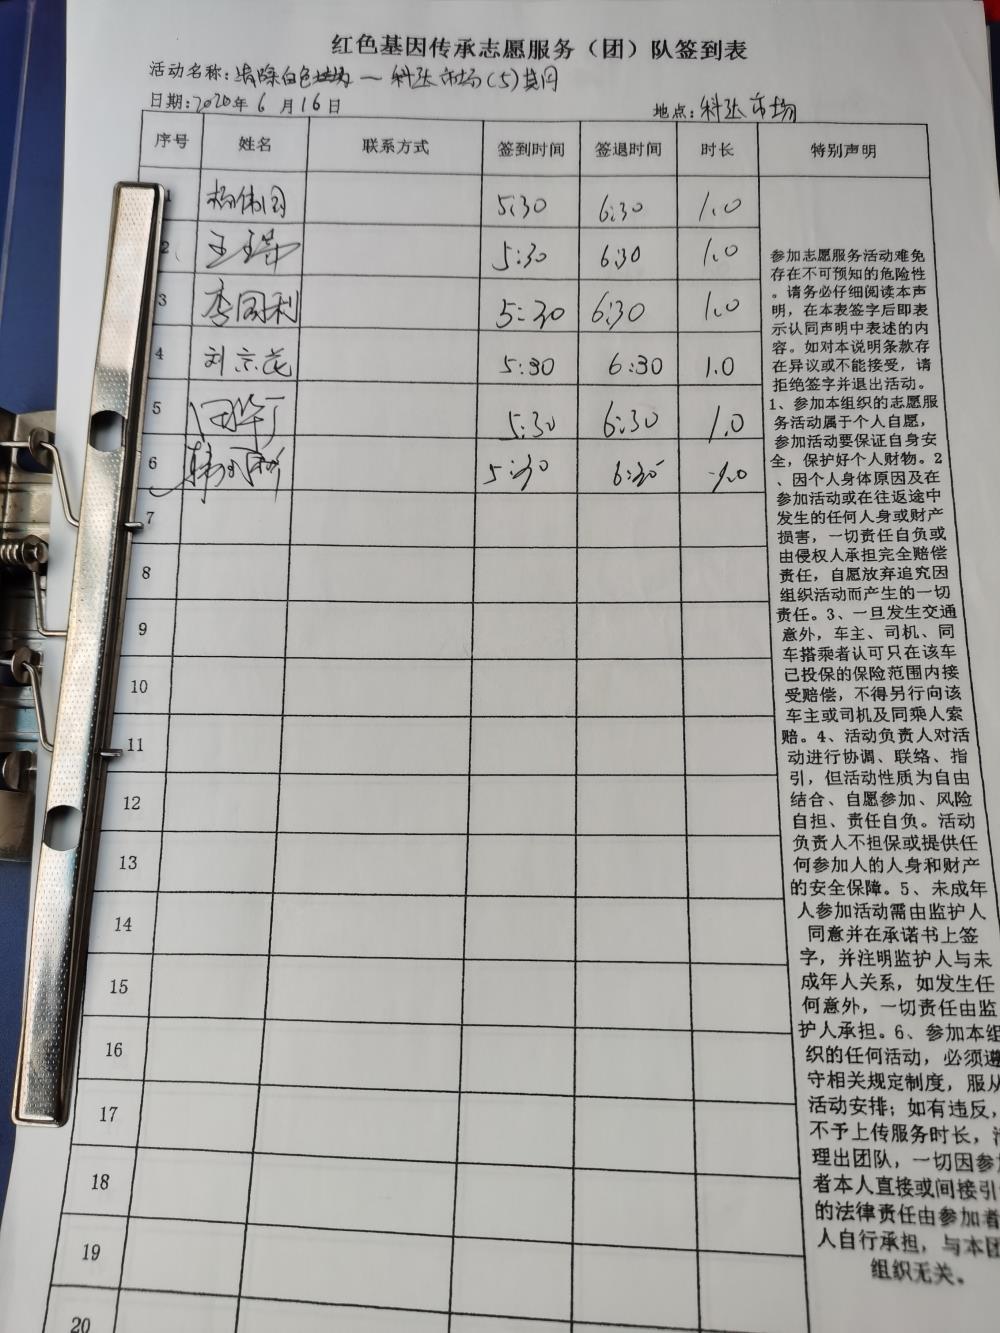 红色基因传承志愿服务（团）队签到表
活动名称：清除白色垃圾 — 科达市场(5)其同
日期：2020年 6 月 16 日 地点：科达市场
序号 姓名 联系方式 签到时间 签退时间 时长 特别声明
1 5:30 6:30 1.0
2 5:30 6:30 1.0
3 李国利 5:30 6:30 1.0
4 刘京花 5:30 6:30 1.0
5 5:30 6:30 1.0
6 5:30 6:30 1.0
7
8
9
10
11
12
13
14
15
16
17
18
19
20
参加志愿服务活动难免
存在不可预知的危险性
。请务必仔细阅读本声
明，在本表签字后即表
示认同声明中表述的内
容。如对本说明条款存
在异议或不能接受，请
拒绝签字并退出活动。
1、参加本组织的志愿服
务活动属于个人自愿，
参加活动要保证自身安
全，保护好个人财物。2
、因个人身体原因及在
参加活动或在往返途中
发生的任何人身或财产
损害，一切责任自负或
由侵权人承担完全赔偿
责任，自愿放弃追究因
组织活动而产生的一切
责任。3、一旦发生交通
意外，车主、司机、同
车搭乘者认可只在该车
已投保的保险范围内接
受赔偿，不得另行向该
车主或司机及同乘人索
赔。4、活动负责人对活
动进行协调、联络、指
引，但活动性质为自由
结合、自愿参加、风险
自担、责任自负。活动
负责人不担保或提供任
何参加人的人身和财产
的安全保障。5、未成年
人参加活动需由监护人
同意并在承诺书上签
字，并注明监护人与未
成年人关系，如发生任
何意外，一切责任由监
护人承担。6、参加本组
织的任何活动，必须遵
守相关规定制度，服从
活动安排；如有违反，
不予上传服务时长，清
理出团队，一切因参加
者本人直接或间接引
的法律责任由参加者
人自行承担，与本团
组织无关。